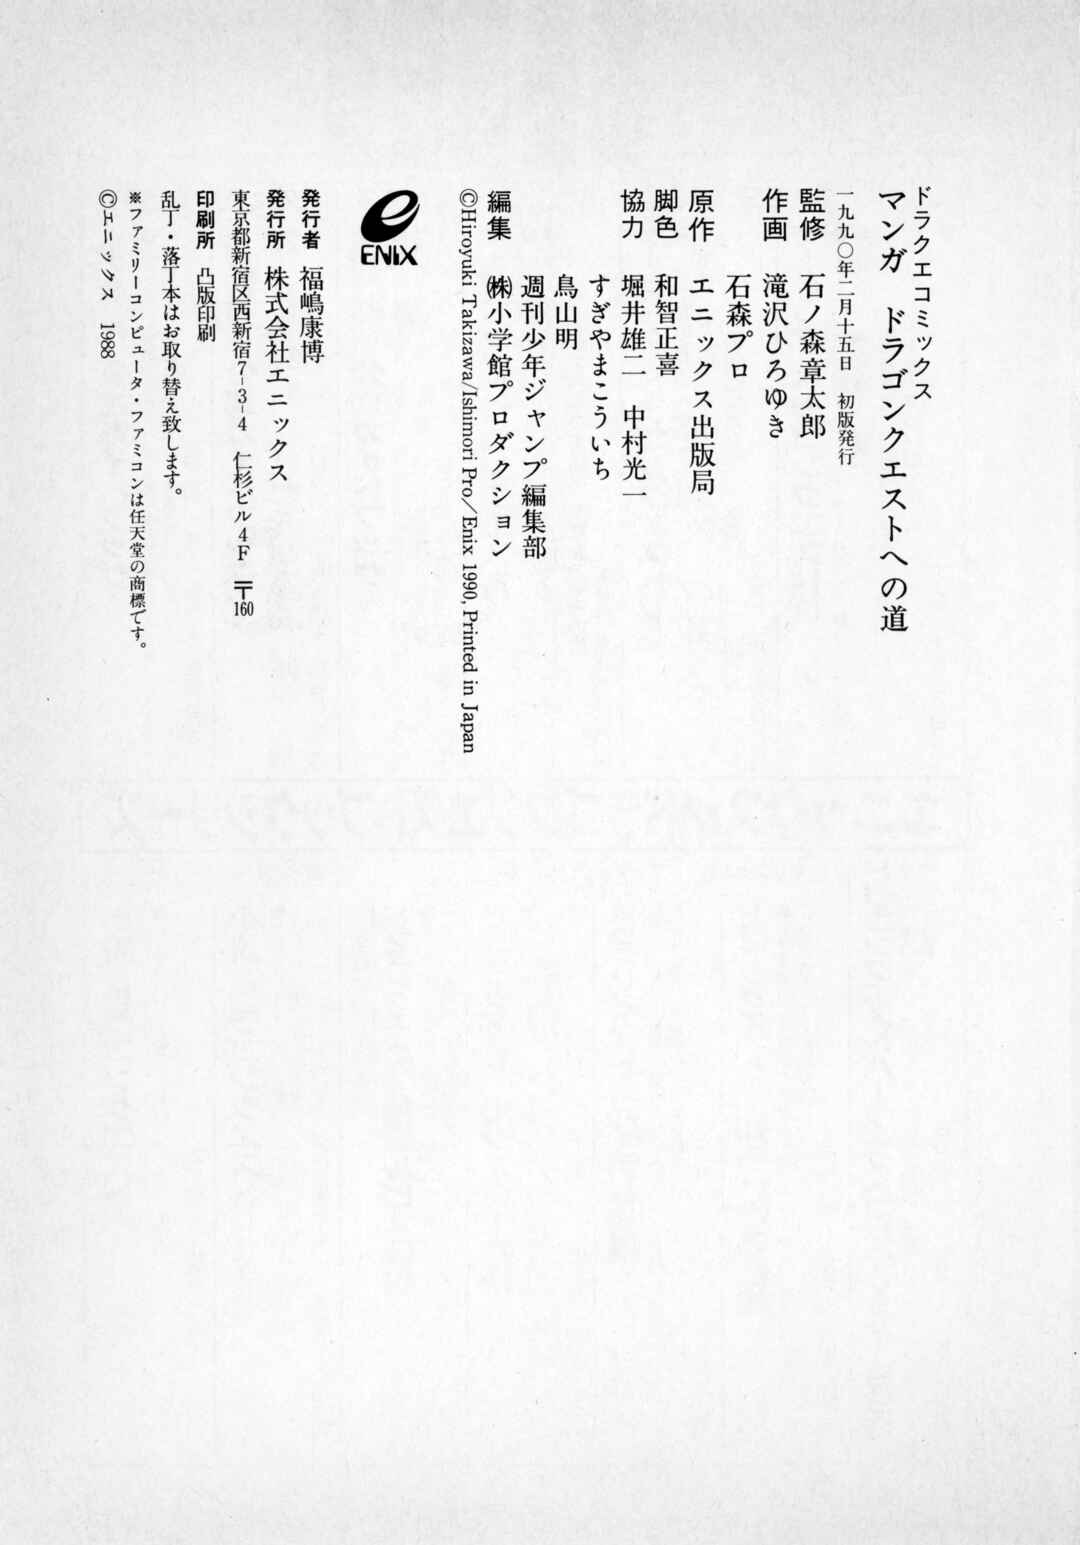 ドラクエコミックス
マンガ ドラゴンクエストへの道
一九九〇年二月十五日 初版発行
監修 石ノ森章太郎
作画 滝沢ひろゆき
石森プロ
原作 エニックス出版局
脚色 和智正喜
協力 堀井雄二 中村光一
すぎやまこういち
鳥山明
週刊少年ジャンプ編集部
編集 ㈱小学館プロダクション
©Hiroyuki Takizawa/Ishimori Pro/Enix 1990, Printed in Japan
ENIX
発行者 福嶋康博
発行所 株式会社エニックス
東京都新宿区西新宿7-3-4 仁杉ビル4F 〒160
印刷所 凸版印刷
乱丁・落丁本はお取り替え致します。
※ファミリーコンピュータ・ファミコンは任天堂の商標です。
©エニックス 1988